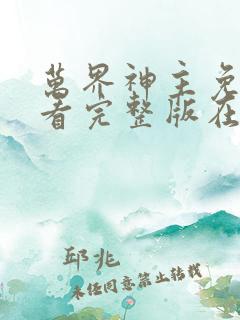 萬界神主免
看完整版在
邱兆
未经同意禁止转载